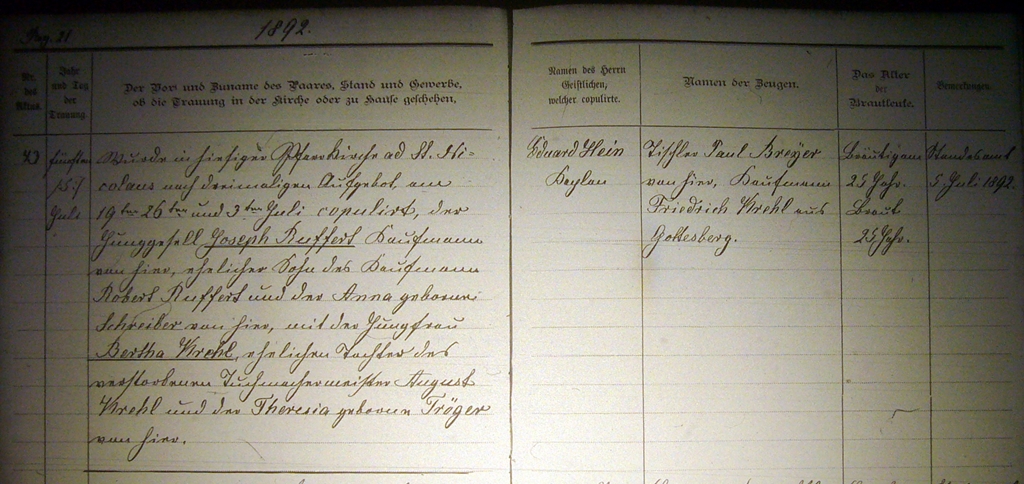 Pag. 21
1892.
Nr. des Aktus.
Jahr und Tag der Trauung.
Der Vor- und Zuname des Paares, Stand und Gewerbe,
ob die Trauung in der Kirche oder zu Hause geschehen.
Namen des Herrn
Geistlichen,
welcher copulirte.
Namen der Zeugen.
Das Alter
der
Brautleute.
Bemerkungen.
fünften
/5./
Juli
Wurde in hiesiger Pfarrkirche ad St. Ni-
colaus nach dreimaligen Aufgebot, am
19ten 26ten und 3ten Juli copulirt, der
Junggesell Joseph Ruffert Kaufmann
von hier, ehelicher Sohn des Kaufmann
Robert Ruffert und der Anna geborene
Schreiber von hier, mit der Jungfrau
Bertha Krehl, ehelichen Tochter des
verstorbenen Tuchmachermeister August
Krehl und der Theresia geborene Tröger
von hier.
Eduard Hein
Kaplan
Tischler Paul Breyer
von hier, Kaufmann
Friedrich Krehl aus
Gottesberg.
Bräutigam
25 Jahr.
Braut
25 Jahr.
Standesamt
5 Juli 1892.